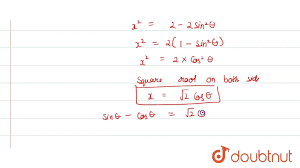 x² = 2 - 2 sin²θ
x² = 2(1 - sin²θ)
x² = 2 × cos²θ
Square root on both side
x = √2 cosθ
sinθ - cosθ = √2
doubtnut